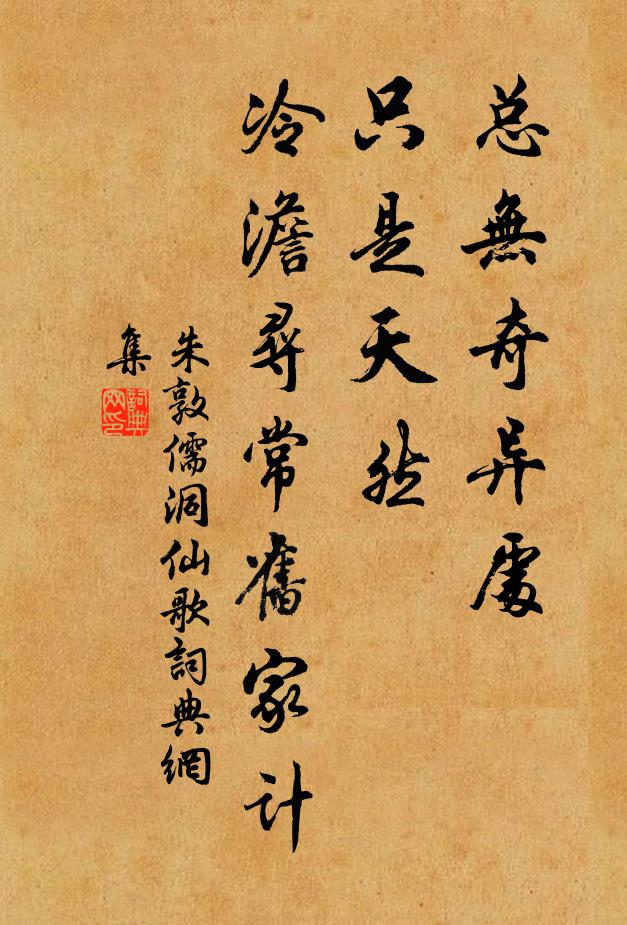 总無奇异處
只是天然
冷澹尋常舊家计
朱敦儒洞仙歌詞典網
集
詞典
网印